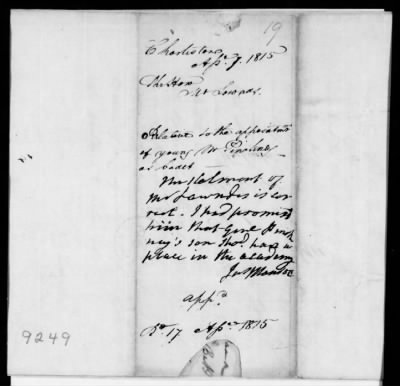 19
Charleston
Apl. 7. 1815
The Hon
Mr Lownds.
Relative to the appointment
of young Mr Pinckney
as cadet
The statement of
Mr Lowndes is cor-
rect. I had promised
him that Genl Pinck-
ney's son Thos. had a
place in the academy
Jas Monroe
appd.
17 Apl. 1815
9249